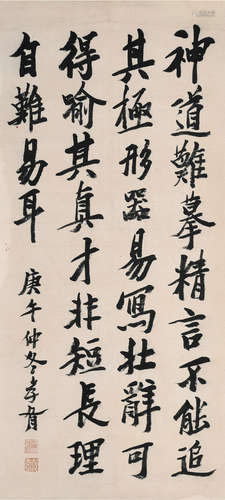 神道難摹精言不能追
其極形器易寫壯辭可
得喻其真才非短長理
自難易耳
庚午仲冬孝胥